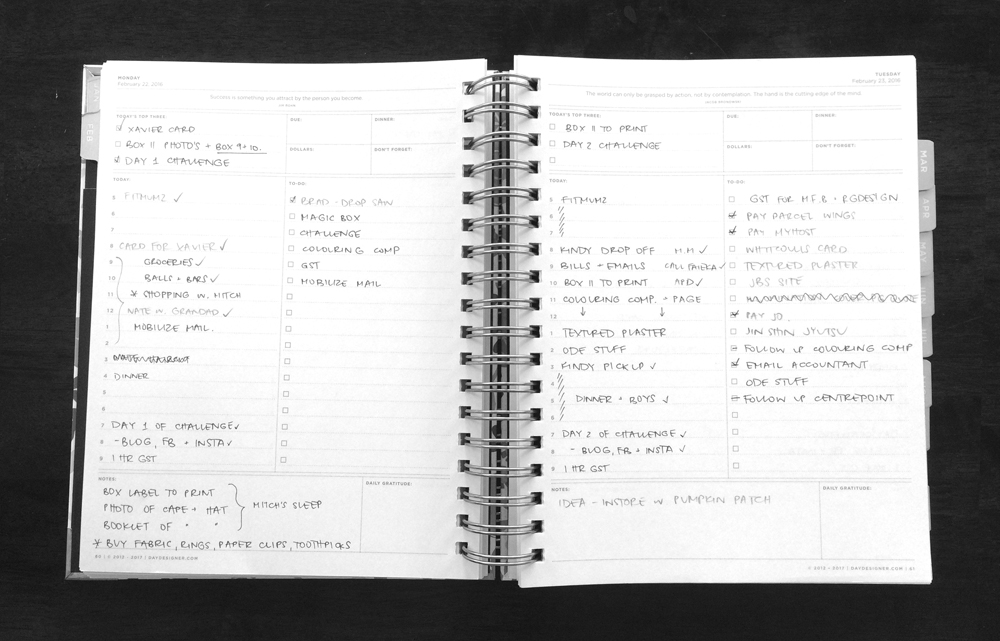 MONDAY
February 22, 2016
Success is something you attract by the person you become.
JIM ROHN
TODAY'S TOP THREE:
XAVIER CARD
BOX 11 PHOTO'S + BOX 9+10.
DAY 1 CHALLENGE
DUE:
DINNER:
DOLLARS:
DON'T FORGET:
TODAY:
5 FITMUMZ ✓
6
7
8 CARD FOR XAVIER ✓
9 GROCERIES ✓
10 BALLS + BARS ✓
11 * SHOPPING W. MITCH
12 NATE W. GRANDAD ✓
1 MOBILIZE MAIL.
2
3
4 DINNER
5
6
7 DAY 1 OF CHALLENGE ✓
8 - BLOG, FB + INSTA ✓
9 1 HR GST
TO-DO:
BRAD - DROP SAW
MAGIC BOX
CHALLENGE
COLOURING COMP
GST
MOBILIZE MAIL
NOTES:
BOX LABEL TO PRINT
PHOTO OF CAPE + HAT
BOOKLET OF " "
MITCH'S SLEEP
* BUY FABRIC, RINGS, PAPER CLIPS, TOOTHPICKS
DAILY GRATITUDE:
© 2013 - 2017 | DAYDESIGNER.COM
FEB
TUESDAY
February 23, 2016
The world can only be grasped by action, not by contemplation. The hand is the cutting edge of the mind.
TODAY'S TOP THREE:
BOX 11 TO PRINT
DAY 2 CHALLENGE
DUE:
DINNER:
DOLLARS:
DON'T FORGET:
TODAY:
5 FITMUMZ
6
7
8 KINDY DROP OFF M.M ✓
9 BILLS + EMAILS CALL FAIEKA ✓
10 BOX 11 TO PRINT APD ✓
11 COLOURING COMP. + PAGE
12 ↓ ↓
1 TEXTURED PLASTER
2 ODE STUFF
3 KINDY PICK UP ✓
4
5 DINNER + BOYS ✓
6
7 DAY 2 OF CHALLENGE ✓
8 - BLOG, FB + INSTA ✓
9 1 HR GST
TO-DO:
GST FOR M.F.B + RGDESIGN
PAY PARCEL WINGS
PAY MYHOST
WHITCOULLS CARD
TEXTURED PLASTER
JBS SITE
PAY JD.
JIN SHIN JYUTSU
FOLLOW UP COLOURING COMP
EMAIL ACCOUNTANT
ODE STUFF
FOLLOW UP CENTREPOINT
NOTES:
IDEA - INSTORE W PUMPKIN PATCH
DAILY GRATITUDE:
© 2013 - 2017 | DAYDESIGNER.COM
MAR
APR
MAY